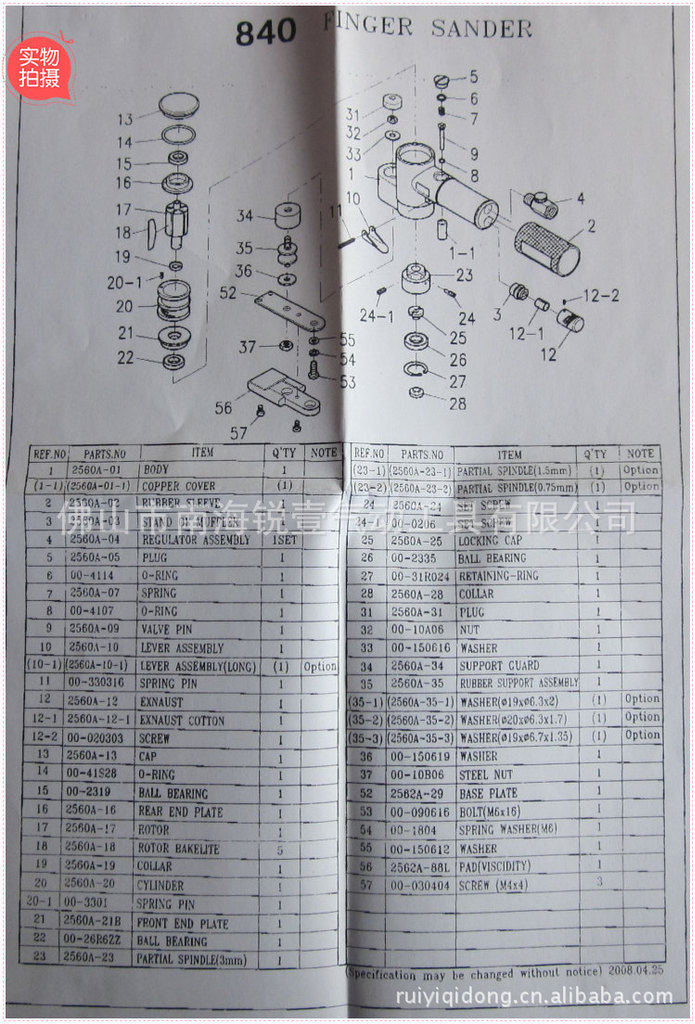 840 FINGER SANDER
实物
拍摄
13
14
15
16
17
18
19
20-1
20
21
22
34
35
36
52
37
56
57
55
54
53
31
32
33
1
10
11
5
6
7
9
8
1-1
4
2
3
12-1
12-2
12
23
24-1
24
25
26
27
28
REF.NO PARTS.NO ITEM Q'TY NOTE
1 2560A-01 BODY 1
(1-1) (2560A-01-1) COPPER COVER (1)
2 2560A-02 RUBBER SLEEVE 1
3 2560A-03 STAND OF MUFFLER 1
4 2560A-04 REGULATOR ASSEMBLY 1SET
5 2560A-05 PLUG 1
6 00-4114 O-RING 1
7 2560A-07 SPRING 1
8 00-4107 O-RING 1
9 2560A-09 VALVE PIN 1
10 2560A-10 LEVER ASSEMBLY 1
(10-1) (2560A-10-1) LEVER ASSEMBLY(LONG) (1) Option
11 00-330316 SPRING PIN 1
12 2560A-12 EXNAUST 1
12-1 2560A-12-1 EXNAUST COTTON 1
12-2 00-020303 SCREW 1
13 2560A-13 CAP 1
14 00-41S28 O-RING 1
15 00-2319 BALL BEARING 1
16 2560A-16 REAR END PLATE 1
17 2560A-17 ROTOR 1
18 2560A-18 ROTOR BAKELITE 5
19 2560A-19 COLLAR 1
20 2560A-20 CYLINDER 1
20-1 00-3301 SPRING PIN 1
21 2560A-21B FRONT END PLATE 1
22 00-26R6ZZ BALL BEARING 1
23 2560A-23 PARTIAL SPINDLE(3mm) 1
REF.NO PARTS.NO ITEM Q'TY NOTE
(23-1) (2560A-23-1) PARTIAL SPINDLE(1.5mm) (1) Option
(23-2) (2560A-23-2) PARTIAL SPINDLE(0.75mm) (1) Option
24 2560A-24 SET SCREW 1
24-1 00-0206 SET SCREW 1
25 2560A-25 LOCKING CAP 1
26 00-2335 BALL BEARING 1
27 00-31R024 RETAINING-RING 1
28 2560A-28 COLLAR 1
31 2560A-31 PLUG 1
32 00-10A06 NUT 1
33 00-150616 WASHER 1
34 2560A-34 SUPPORT GUARD 1
35 2560A-35 RUBBER SUPPORT ASSEMBLY 1
(35-1) (2560A-35-1) WASHER(ø19xø6.3x2) (1) Option
(35-2) (2560A-35-2) WASHER(ø20xø6.3x1.7) (1) Option
(35-3) (2560A-35-3) WASHER(ø19xø6.7x1.35) (1) Option
36 00-150619 WASHER 1
37 00-10B06 STEEL NUT 1
52 2562A-29 BASE PLATE 1
53 00-090616 BOLT(M6x16) 1
54 00-1804 SPRING WASHER(M6) 1
55 00-150612 WASHER 1
56 2562A-88L PAD(VISCIDITY) 1
57 00-030404 SCREW (M4x4) 3
佛山市南海锐壹气动工具有限公司
(Specification may be changed without notice) 2008.04.25
ruiyiqidong.cn.alibaba.com